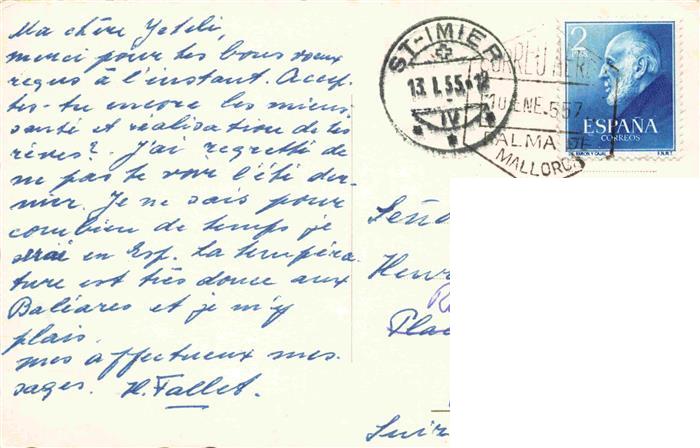 Ma chère Yeteli,
merci pour tes bons voeux
reçus à l'instant. Accep-
tes-tu encore les miens:
santé et réalisation de tes
rêves? J'ai regretté de
ne pas te voir l'été der-
nier. Je ne sais pour
combien de temps je
serai en Esp. La tempéra-
ture est très douce aux
Baléares et je m'y
plais.
mes affectueux mes-
sages. H. Fallet.
ST-IMIER
13.I.55.12
IV
CORREO AER
10 ENE. 557
PALMA DE
MALLORCA
2
ESPAÑA
CORREOS
Seño
Henr
Re
Plac
Suiz